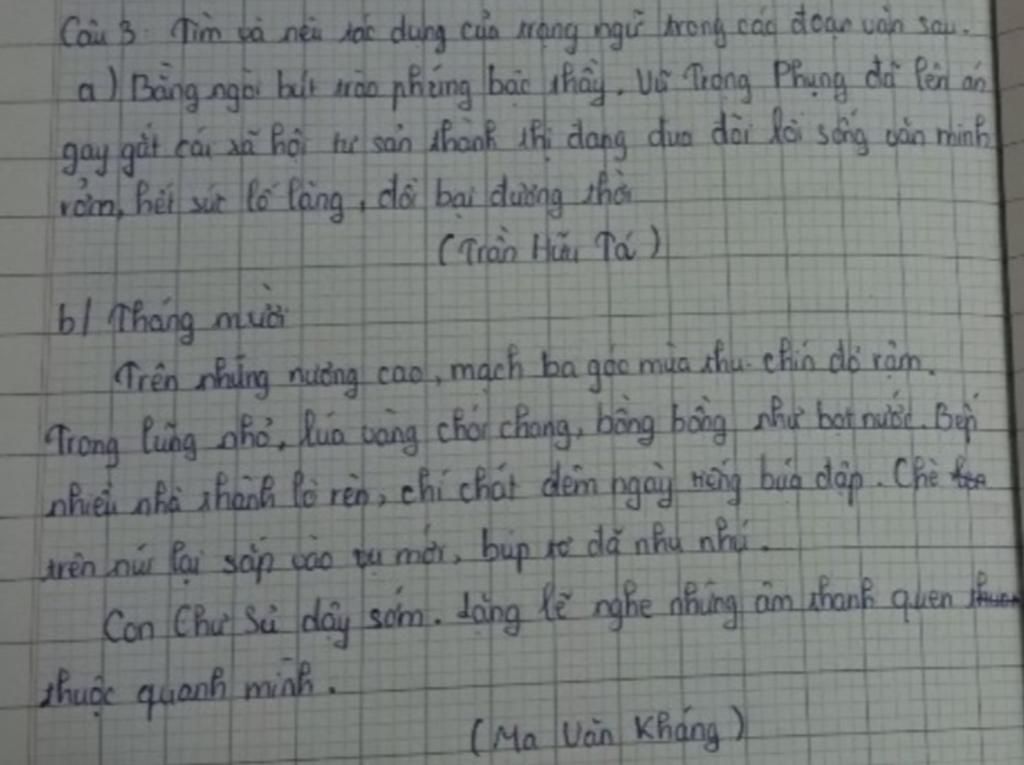 Câu 3: Tìm và nêu tác dụng của trạng ngữ trong các đoạn văn sau.
a) Bằng ngòi bút trào phúng bậc thầy, Vũ Trọng Phụng đã lên án
gay gắt cái xã hội tư sản thành thị đang đua đòi lối sống văn minh
rởm, hết sức lố lăng, đồi bại đương thời
(Trần Hữu Tá)
b/ Tháng mười
Trên những nương cao, mạch ba góc mùa thu chín đỏ rậm.
Trong lũng nhỏ, lúa vàng chói chang, bồng bồng như bọt nước. Bếp
nhiều nhà thành lò rèn, chí chát đêm ngày tiếng búa đập. Chè
trên núi lại sắp vào vụ mới, búp tơ đã nhu nhú.
Con Chư Sử dậy sớm. Lắng lẽ nghe những âm thanh quen
thuộc quanh mình.
(Ma Văn Kháng)